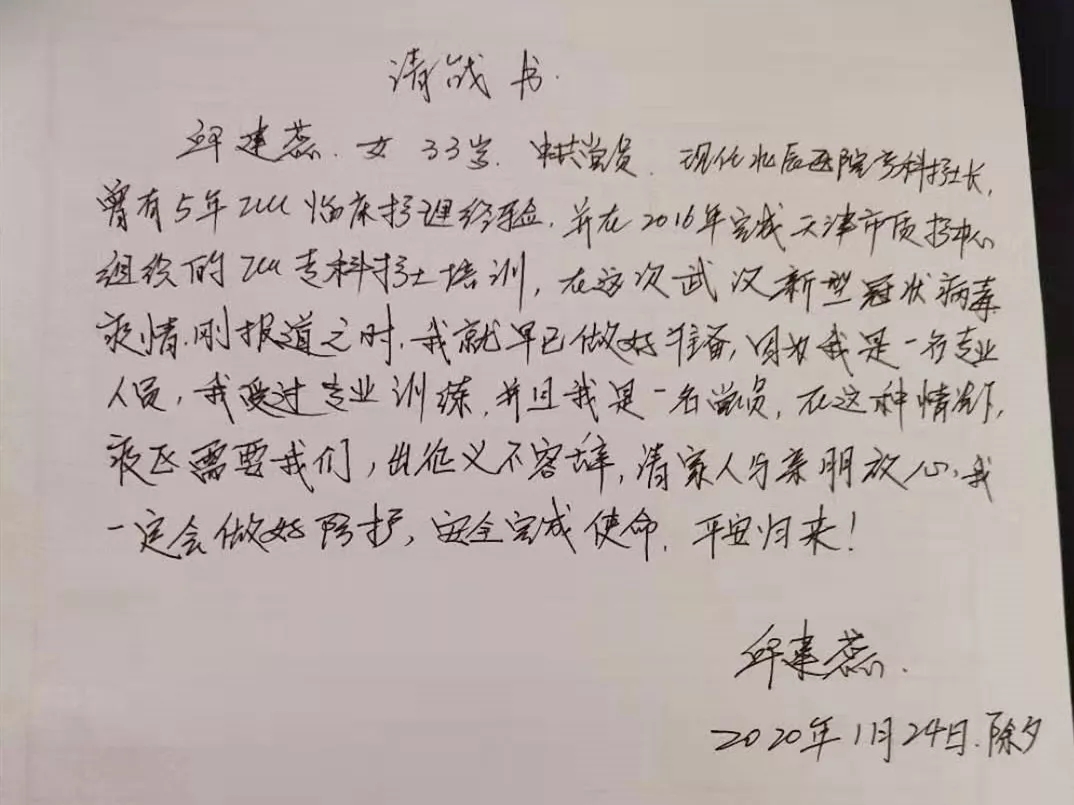 请战书.
邱建蕊.女 33岁.中共党员.现任北辰医院专科护士长,
曾有5年ICU临床护理经验.并在2016年完成天津市质护中心
组织的ICU专科护士培训,在这次武汉新型冠状病毒
疫情刚报道之时.我就早已做好准备,因为我是一名专业
人员,我受过专业训练,并且我是一名党员,在这种情况下,
疫区需要我们,出征义不容辞,请家人与亲朋放心,我
一定会做好防护,安全完成使命.平安归来!
邱建蕊.
2020年1月24日.除夕